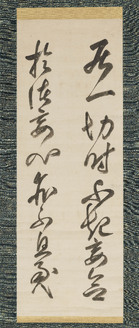 居一切時不起妄念
於諸妄心亦不息滅